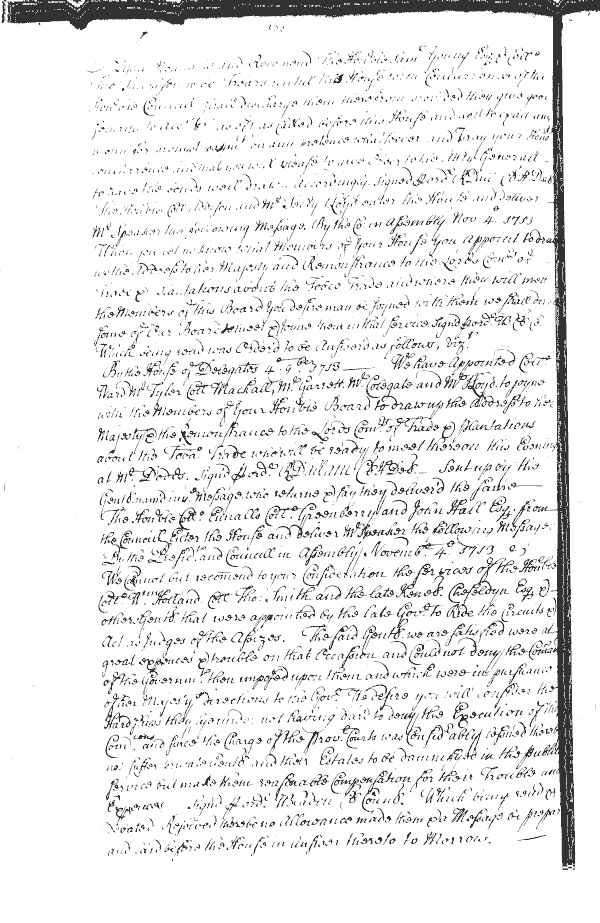 and Recomend The Honble Saml Young Esqr
Treasurers until this House with Concurrence of the
Honble Council shall discharge them therefrom provided they give good
security to as oft as called before this House and not to exact any
on any pretence whatsoever and Pray your Honrs
concurrence and that you will please to give Order to the Atty Generall
to have the bonds well drawn Accordingly. Signed
The Honble Coll Addison and Mr Lloyd enter the House and deliver
Mr Speaker the following Message. By the Co in Assembly Nov. 4o 1713
When you let us know what Members of Your House You Appoint to draw
up the Address to her Majesty and Remonstrance to the Lords Comrs of
Trade & plantations about the Tobco Trade and where they will meet
the Members of this Board You desire may be joyned with them we shall
some of Our Board to meet & joyne them in that Service Signd
Which being read was Orderd to be Answerd as follows, Vizt
By the House of Delegates 4o 9ber 1713 We have Appointed Collo
Ward Mr Tyler Coll Mackall, Mr Garrett, Mr Colegate and Mr Lloyd to joyne
with the Members of Your Honble Board to draw up the Address to her
Majesty & the Remonstrance to the Lords Comrs of Trade & plantations
about the Tobao Trade who will be ready to meet thereon this Evening
at Mr Signd Sent up by the
Gents named in ye Message who returne & say they deliverd the same
The Honble Collo Ennalls Collo Greenberry and John Hall Esqr from
the Council Enter the House and deliver Mr Speaker the following Message.
By the Presidt and Councill in Assembly Novembr 4o 1713
We Cannot but recomend to your Consideration the Services of the Honble
Collo Wm Holland Coll Tho: Smith and the late Kenelm Cheseldyn Esqr &
other Gents that were appointed by the late Govr to Ride the Circuits &
Act as Judges of the Assizes. The said Gents we are satisfied were at
great expences & trouble on that Occassion and Could not deny the Comand
of the Governmt then imposed upon them and which were in pursuance
of her Majestys directions to the Govr We desire you will consider the
Hardships they lye under not having dard to deny the Execution of their
Comicons and since the Charge of the Prove Courts was Considerably lessned thereby
not suffer private Gents and their Estates to be damnifyed in the publick
Service but make them reasonable Compensation for their Trouble and
Expences Signd Which being read &
Debated Resolved there be no Allowance made them & a Message be prepard
and laid before the House in Answer thereto to Morrow.